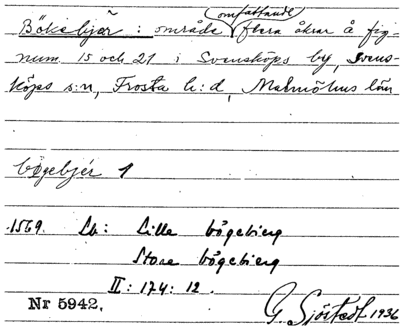 Bökebjär : område (omfattande) flera åkrar å fig-
num. 15 och 21 i Svensköps by, Svens-
köps s:n, Frosta h:d, Malmöhus län
bögebjér 1
1569. Lb: Lille bögebierg
Store bögebierg
II: 174: 12.
Nr 5942.
G. Sjöstedt 1936